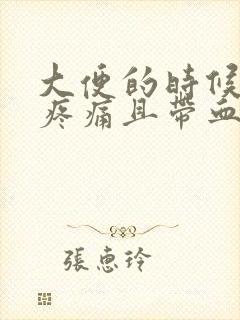 大便的時候
疼痛且帶血
張惠玲